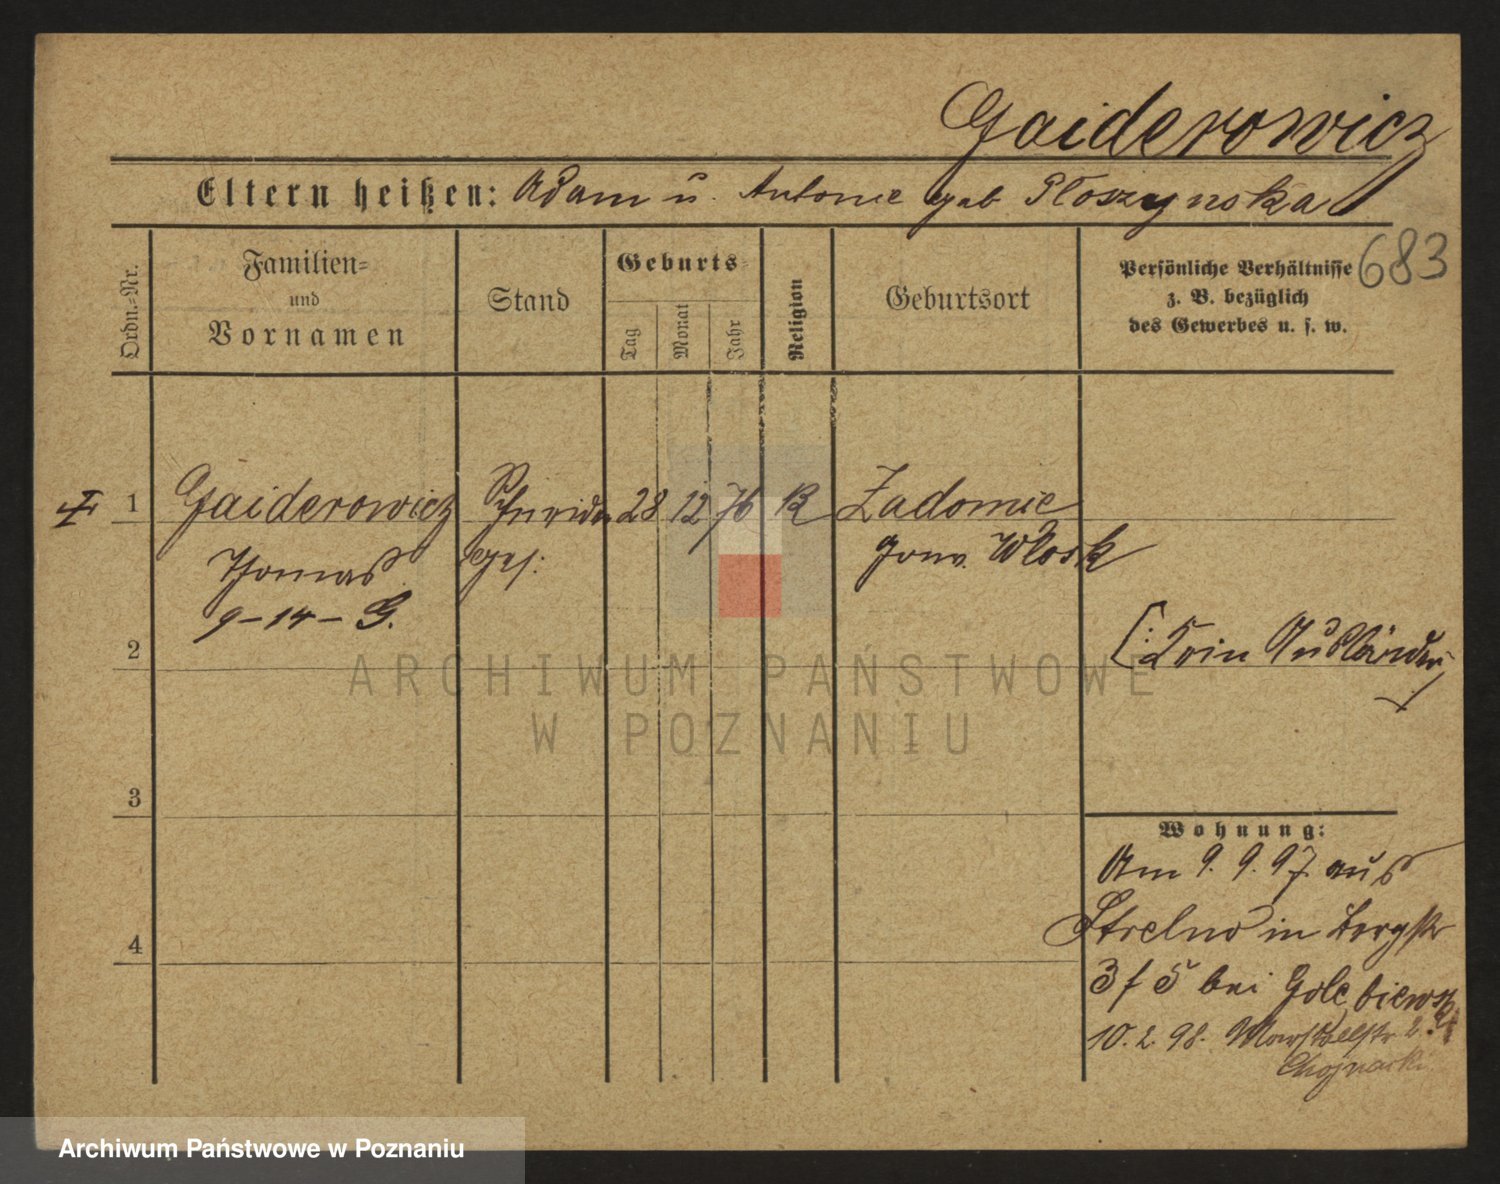 Gaiderowicz
Eltern heißen: Adam u. Antonie geb Płoszynska
683
Ordn.-Nr.
Familien-
und
Vornamen
Stand
Geburts-
Tag
Monat
Jahr
Religion
Geburtsort
Persönliche Verhältnisse
z. B. bezüglich
des Gewerbes u. s. w.
I 1 Gaiderowicz Schneider 28 12 76 K Zadowie
Thomas Ges: Gouv. Włosk
9-14-G.
2
[: Kein Ausländer
3
4
Wohnung:
Am 9. 9. 97. aus
Strelno in Bergstr
3 f 5 bei Golembiewski
10. 2. 98. Marstallstr 2.
Chojnacki
ARCHIWUM PAŃSTWOWE
W POZNANIU
Archiwum Państwowe w Poznaniu